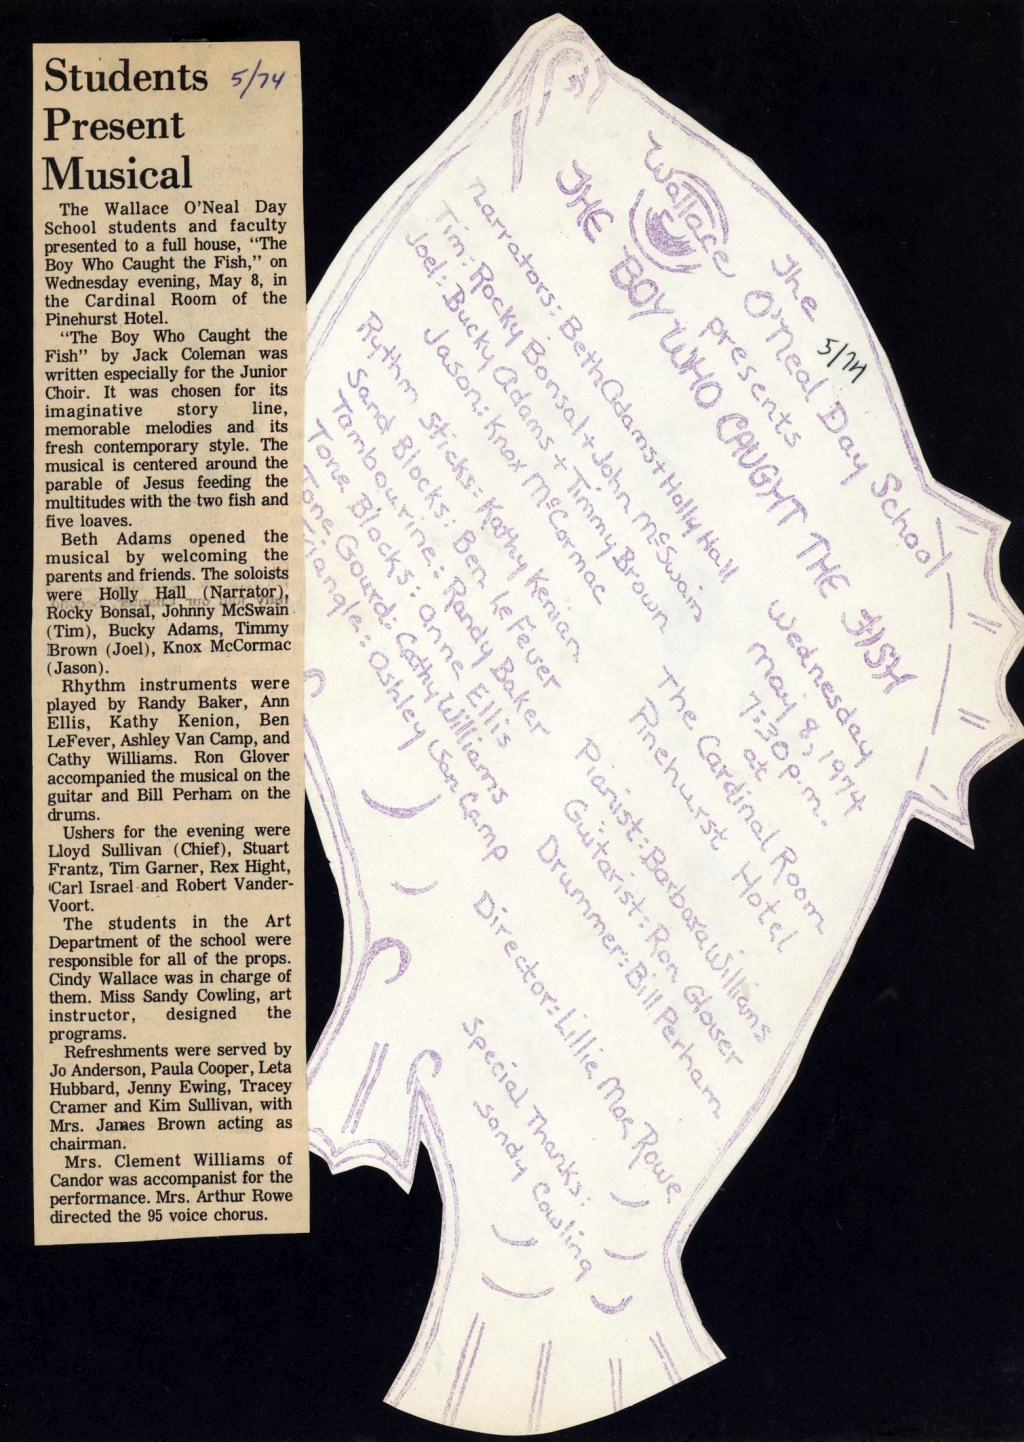 Students 5/74
Present
Musical
The Wallace O'Neal Day
School students and faculty
presented to a full house, "The
Boy Who Caught the Fish," on
Wednesday evening, May 8, in
the Cardinal Room of the
Pinehurst Hotel.
"The Boy Who Caught the
Fish" by Jack Coleman was
written especially for the Junior
Choir. It was chosen for its
imaginative story line,
memorable melodies and its
fresh contemporary style. The
musical is centered around the
parable of Jesus feeding the
multitudes with the two fish and
five loaves.
Beth Adams opened the
musical by welcoming the
parents and friends. The soloists
were Holly Hall (Narrator),
Rocky Bonsal, Johnny McSwain
(Tim), Bucky Adams, Timmy
Brown (Joel), Knox McCormac
(Jason).
Rhythm instruments were
played by Randy Baker, Ann
Ellis, Kathy Kenion, Ben
LeFever, Ashley Van Camp, and
Cathy Williams. Ron Glover
accompanied the musical on the
guitar and Bill Perham on the
drums.
Ushers for the evening were
Lloyd Sullivan (Chief), Stuart
Frantz, Tim Garner, Rex Hight,
Carl Israel and Robert Vander-
Voort.
The students in the Art
Department of the school were
responsible for all of the props.
Cindy Wallace was in charge of
them. Miss Sandy Cowling, art
instructor, designed the
programs.
Refreshments were served by
Jo Anderson, Paula Cooper, Leta
Hubbard, Jenny Ewing, Tracey
Cramer and Kim Sullivan, with
Mrs. James Brown acting as
chairman.
Mrs. Clement Williams of
Candor was accompanist for the
performance. Mrs. Arthur Rowe
directed the 95 voice chorus.
The
Wallace O'Neal Day School
5/74
presents
THE BOY WHO CAUGHT THE FISH
Wednesday
May 8, 1974
7:30 p.m.
at
The Cardinal Room
Pinehurst Hotel
Narrators: Beth Adams + Holly Hall
Tim: Rocky Bonsal + John McSwain
Joel: Bucky Adams + Timmy Brown
Jason: Knox McCormac
Rythm Sticks: Kathy Kenian
Sand Blocks: Ben LeFever
Tambourine: Randy Baker
Tone Blocks: Anne Ellis
Tone Gourd: Cathy Williams
Triangle: Ashley Van Camp
Pianist: Barbara Williams
Guitarist: Ron Glover
Drummer: Bill Perham
Director: Lillie Mae Rowe
Special Thanks:
Sandy Cowling